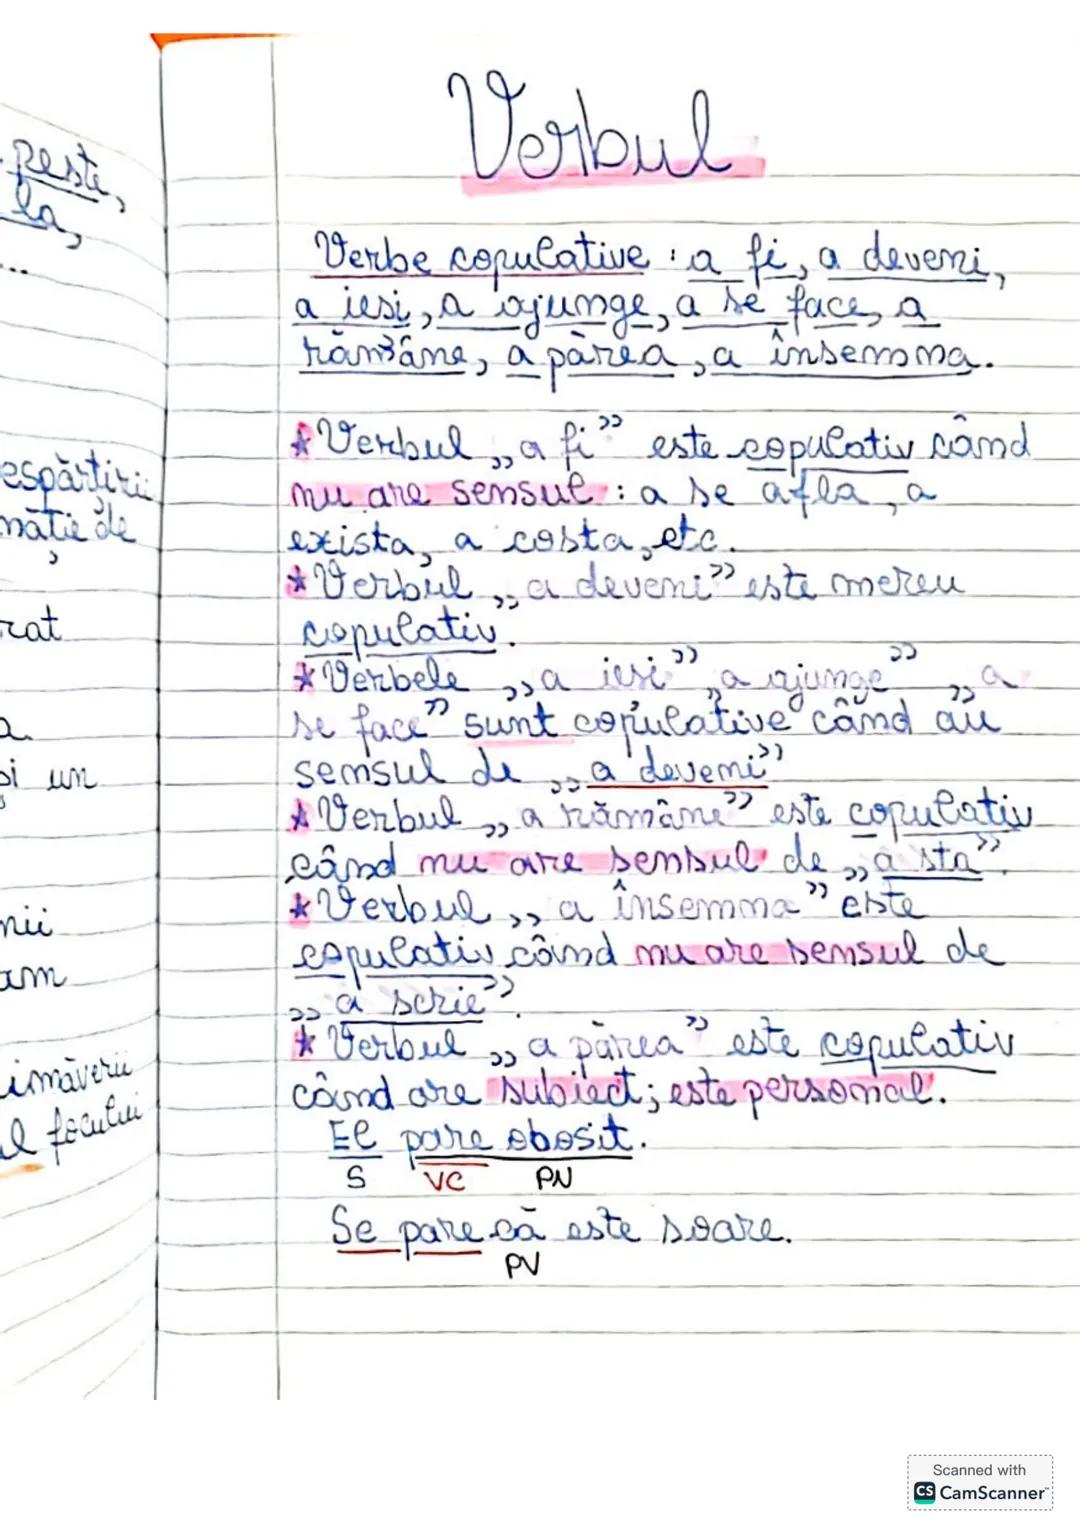 Verbul
Verbe copulative : a fi, a deveni,
a iesi, a ajunge, a se face, a
rămâne, a părea, a însemna.
*Verbul „a fi” este copulativ când
nu are sensul : a se afla, a
exista, a costa, etc.
*Verbul „a deveni” este mereu
copulativ.
*Verbele „a iesi” „a ajunge” „a
se face” sunt copulative când au
sensul de „a deveni”
*Verbul „a rămâne” este copulativ
când nu are sensul de „a sta”.
*Verbul „a însemna” este
copulativ când nu are sensul de
„a scrie”.
*Verbul „a părea” este copulativ
când are subiect; este personal.
El pare obosit.
S VC PN
Se pare că este soare.
PV
peste,
la,
...
espărtirii
nație de
rat
și un
nii
am
imăverii
l focului
Scanned with
CS CamScanner